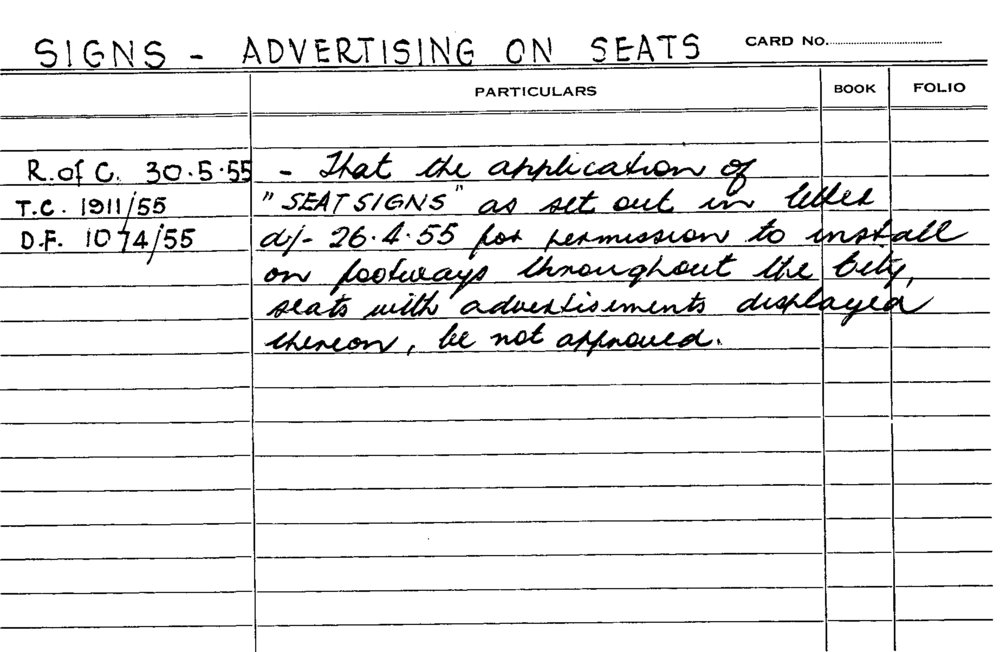 SIGNS - ADVERTISING ON SEATS CARD NO.
PARTICULARS BOOK FOLIO
R. of C. 30.5.55 - That the application of
T.C. 1911/55 "SEATSIGNS" as set out in letter
D.F. 1074/55 d/- 26.4.55 for permission to install
on footways throughout the City,
seats with advertisements displayed
thereon, be not approved.